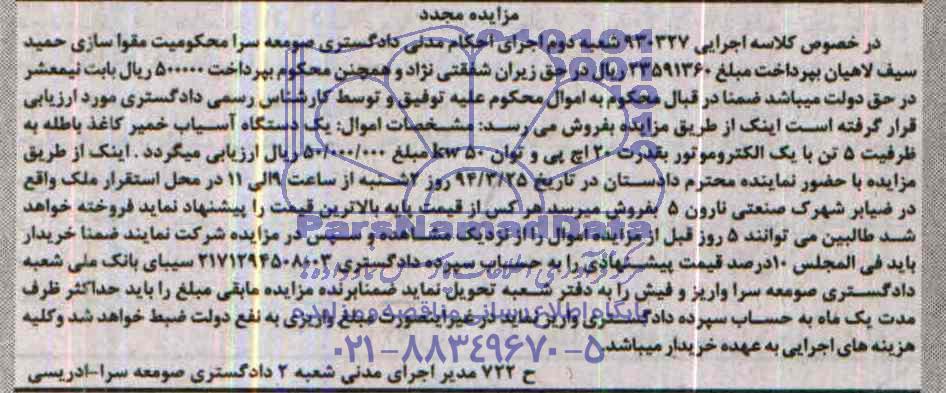 مزایده مجدد
در خصوص کلاسه اجرایی ۹۳۰۳۲۷ شعبه دوم اجرای احکام مدنی دادگستری صومعه سرا محکومیت مقوا سازی حمید
سیف لاهیان بپرداخت مبلغ ۳۳۵۹۱۳۶۰ ریال در حق زیران شفقتی نژاد و همچنین محکوم بپرداخت ۵۰۰۰۰۰ ریال بابت نیمعشر
در حق دولت میباشد ضمنا در قبال محکوم به اموال محکوم علیه توقیف و توسط کارشناس رسمی دادگستری مورد ارزیابی
قرار گرفته است اینک از طریق مزایده بفروش می رسد: مشخصات اموال: یک دستگاه آسیاب خمیر کاغذ باطله به
ظرفیت ۵ تن با یک الکتروموتور بقدرت ۲۰ اچ پی و توان ۵۰ kw مبلغ ۵۰/۰۰۰/۰۰۰ ریال ارزیابی میگردد . اینک از طریق
مزایده با حضور نماینده محترم دادستان در تاریخ ۹۴/۳/۲۵ روز ۲شنبه از ساعت ۹الی ۱۱ در محل استقرار ملک واقع
در ضیابر شهرک صنعتی نارون ۵ بفروش میرسد هر کس از قیمت پایه بالاترین قیمت را پیشنهاد نماید فروخته خواهد
شد طالبین می توانند ۵ روز قبل از مزایده اموال را از نزدیک مشاهده و سپس در مزایده شرکت نمایند ضمنا خریدار
باید فی المجلس ۱۰درصد قیمت پیشنهادی را به حساب سپرده دادگستری ۲۱۷۱۲۹۴۵۰۸۶۰۳ سیبای بانک ملی شعبه
دادگستری صومعه سرا واریز و فیش را به دفتر شعبه تحویل نماید ضمنابرنده مزایده مابقی مبلغ را باید حداکثر ظرف
مدت یک ماه به حساب سپرده دادگستری واریز نماید در غیر اینصورت مبلغ واریزی به نفع دولت ضبط خواهد شد وکلیه
هزینه های اجرایی به عهده خریدار میباشد
ح ۷۲۲ مدیر اجرای مدنی شعبه ۲ دادگستری صومعه سرا-ادریسی
ParsNamadData
پایگاه اطلاع رسانی مناقصه و مزایده
۰۲۱-۸۸۳۴۹۶۷۰-۵